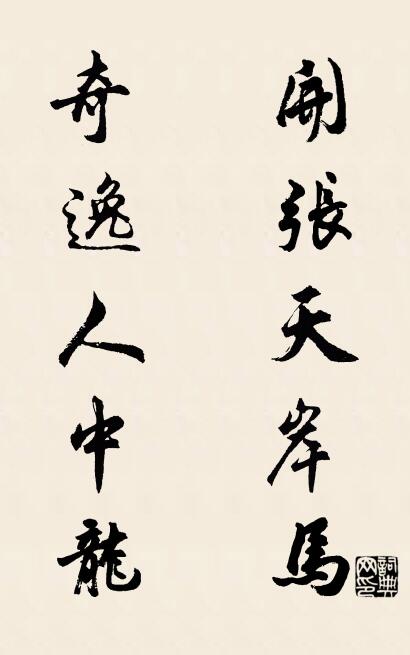 開張天岸馬
奇逸人中龍
詞典
网印